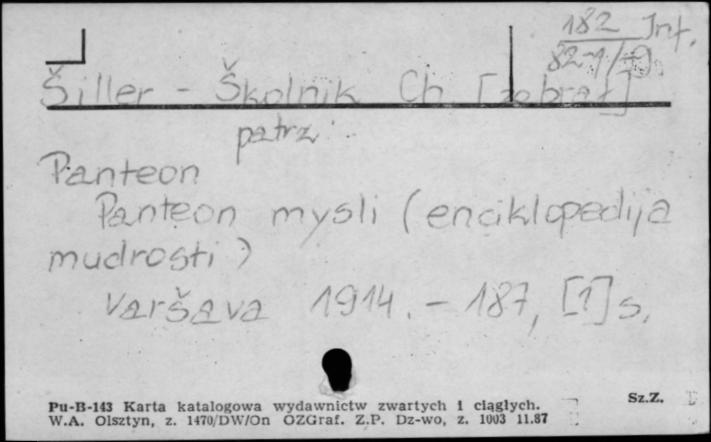 182 Inf.
82-1/-9
Šiller - Školnik Ch [zobrat]
patrz:
Panteon
Panteon mysli (enciklopedija
mudrosti)
Varšava 1914. - 187, [1] s.
Pu-B-143 Karta katalogowa wydawnictw zwartych i ciągłych. Sz.Z.
W.A. Olsztyn, z. 1470/DW/On OZGraf. Z.P. Dz-wo, z. 1003 11.87